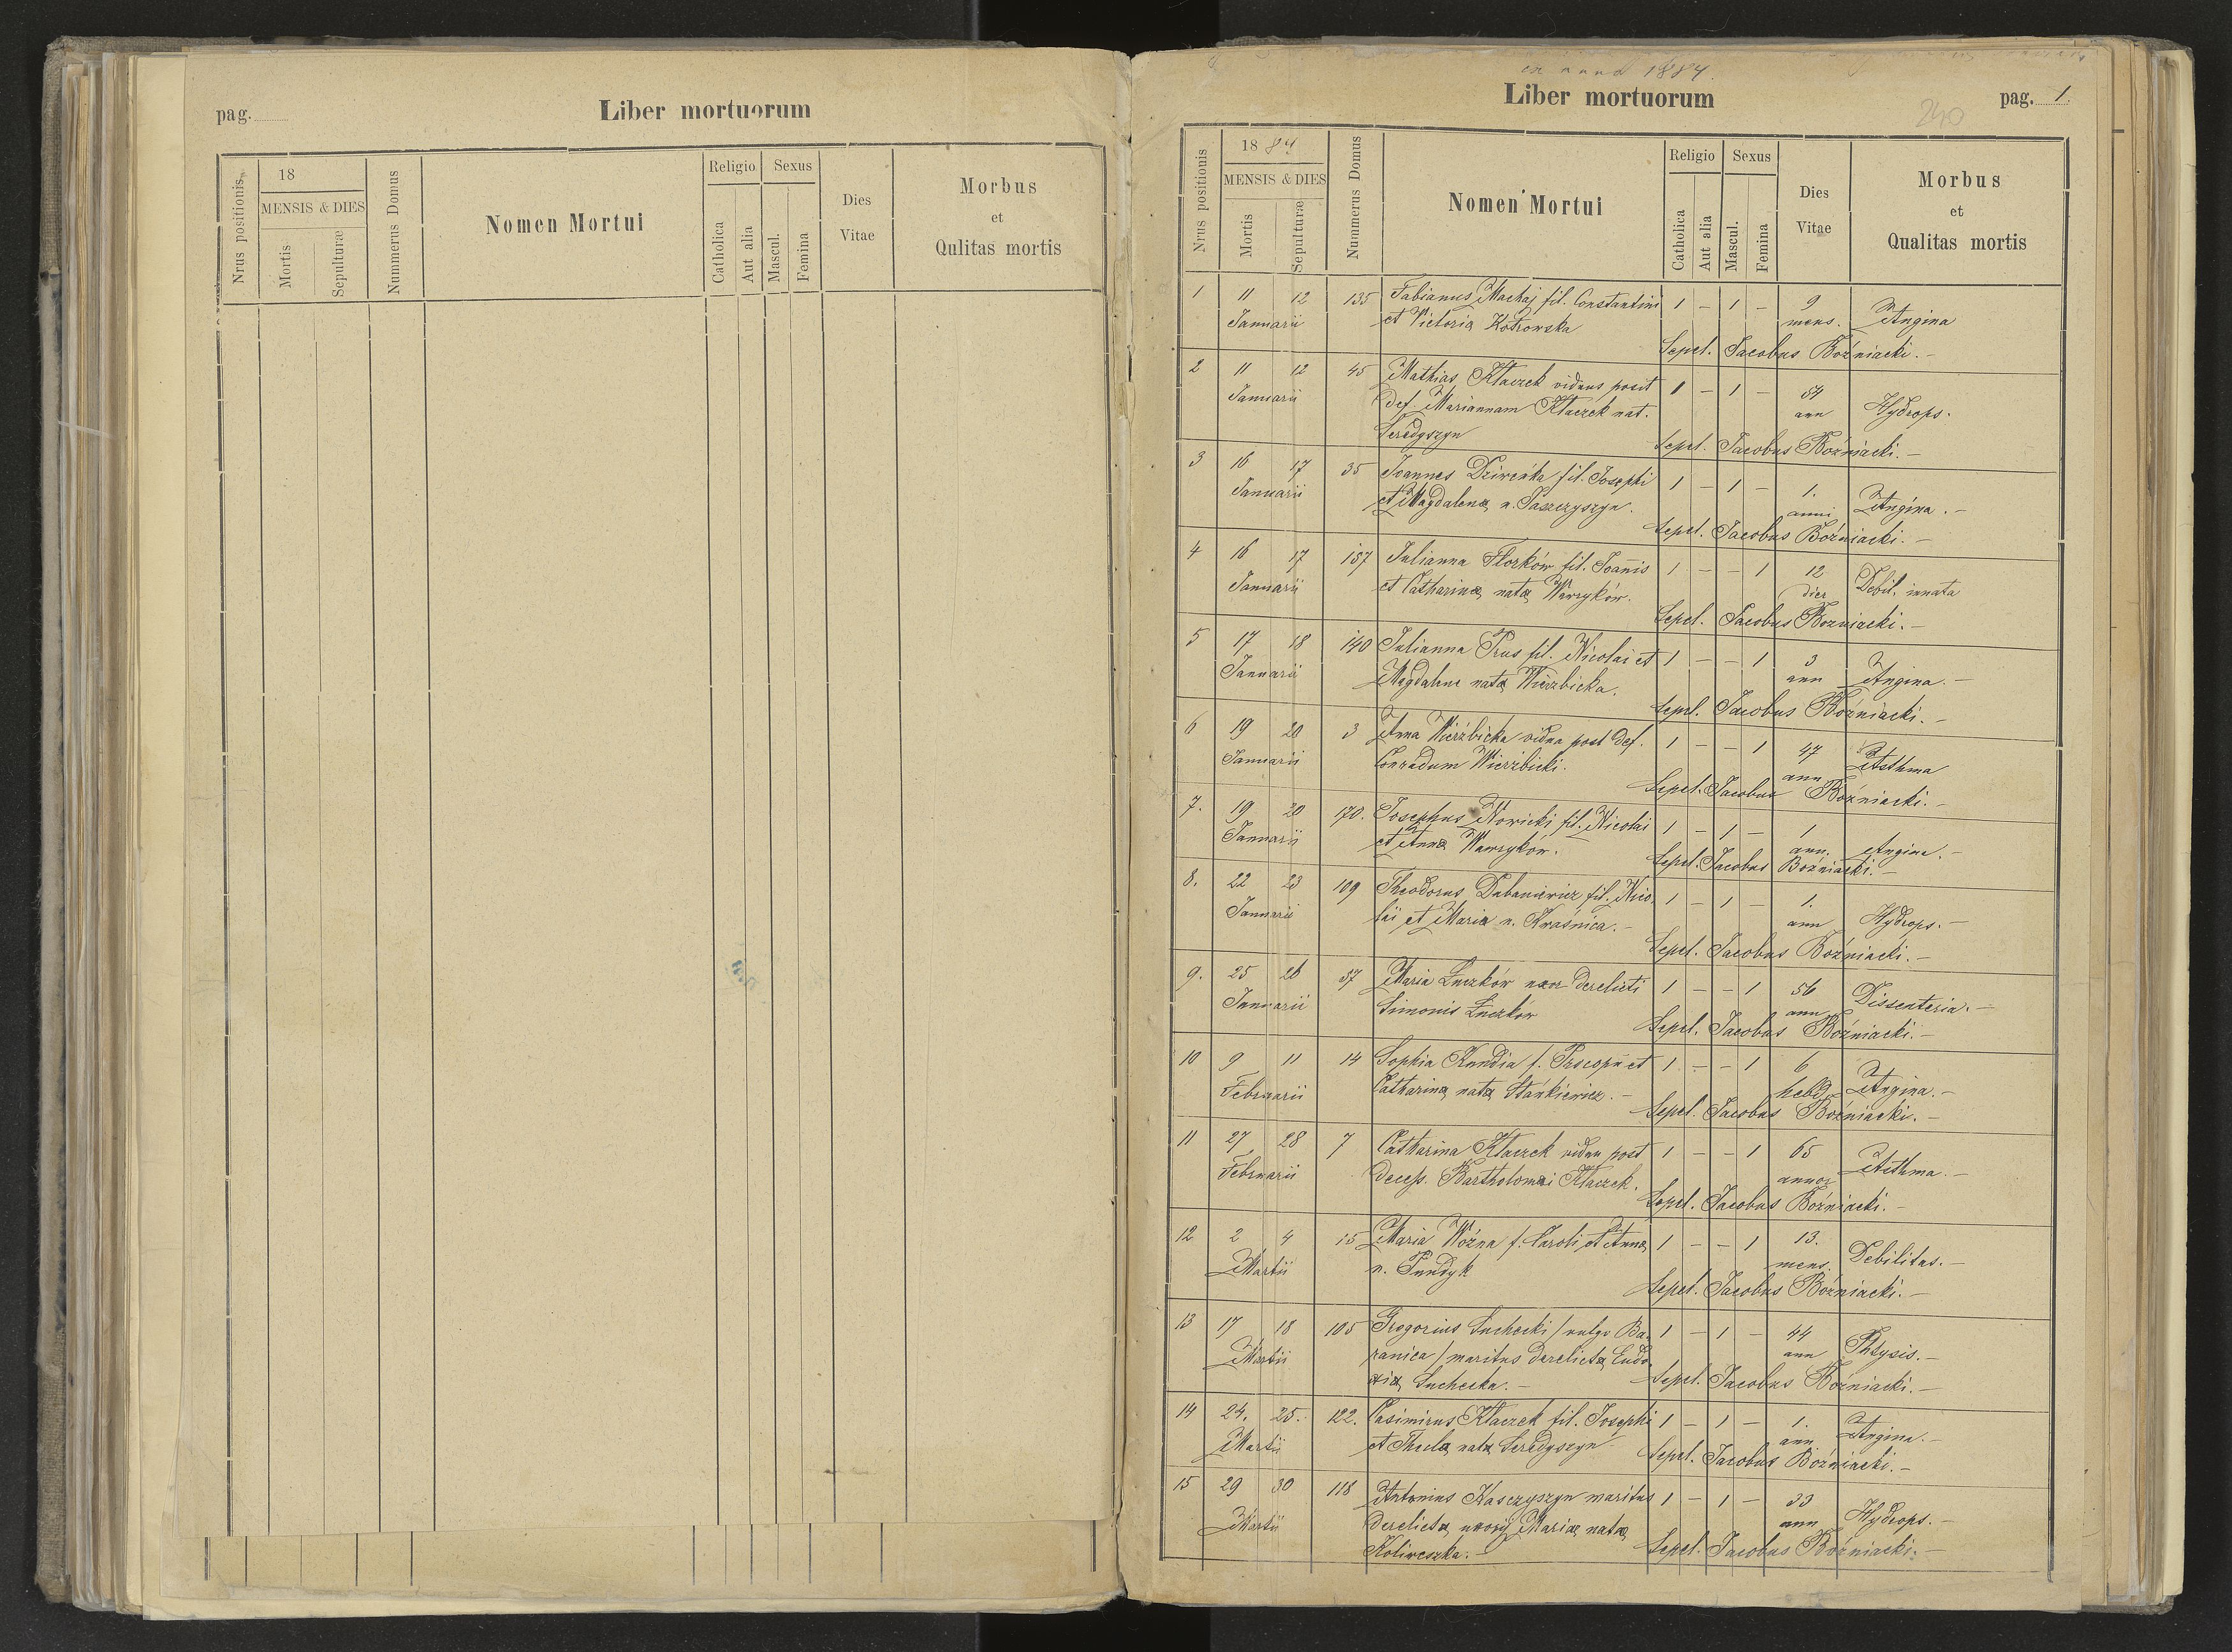 pag.
Liber mortuorum
Nrus positionis
18
MENSIS & DIES
Mortis
Sepulturæ
Nummerus Domus
Nomen Mortui
Religio
Catholica
Aut alia
Sexus
Mascul.
Femina
Dies
Vitae
Morbus
et
Qulitas mortis
ex anno 1884.
Liber mortuorum
240
pag. 1.
Nrus positionis
1884
MENSIS & DIES
Mortis
Sepulturæ
Nummerus Domus
Nomen Mortui
Religio
Catholica
Aut alia
Sexus
Mascul.
Femina
Dies
Vitae
Morbus
et
Qualitas mortis
1 11 12 135 Fabianus Machaj fil. Constantini 1 – 1 – 9
Januarii et Victoria Kotrowska mens. Angina
Sepel. Jacobus Boźniacki. –
2 11 12 45 Mathias Kłaczek viduus posit 1 – 1 – 54
Januarii def. Mariannam Kłaczek nat. ann Hydrops.
Seredyszyn
Sepel. Jacobus Boźniacki. –
3 16 17 35 Joannes Dziweńka fil. Josephi 1 – 1 – 1.
Januarii et Magdalenæ n. Paszczyszyn. anni Angina. –
Sepel. Jacobus Boźniacki. –
4 16 17 137 Julianna Florków fil. Joannis 1 – – 1 12
Januarii et Catharinæ natæ Wawryków. dier Debil. innata
Sepel. Jacobus Boźniacki. –
5 17 18 140 Julianna Prus fil. Nicolai et 1 – – 1 3
Januarii Magdalene natæ Wierzbicka. ann Angina. –
Sepel. Jacobus Boźniacki. –
6 19 20 3 Anna Wierzbicka vidua post def. 1 – – 1 47
Januarii Conradum Wierzbicki. ann Asthma
Sepel. Jacobus Boźniacki. –
7. 19 20 170. Josephus Nowicki fil. Nicolai 1 – 1 – 1
Januarii et Annæ Wawryków. ann. Angina. –
Sepel. Jacobus Boźniacki. –
8. 22 23 109 Theodorus Dubaniewicz fil. Nico 1 – 1 – 1.
Januarii lai et Mariæ n. Kraśnica. – ann Hydrops. –
Sepel. Jacobus Boźniacki. –
9. 25 26 57 Maria Łuczków uxor derelicti 1 – – 1 56
Januarii Simonis Łuczków ann Dissenteria. –
Sepel. Jacobus Boźniacki. –
10 9 11 14 Sophia Kundia f. Procopii et 1 – – 1 6
Februarii Catharinæ natæ Stańkiewicz. – hebd. Angina. –
Sepel. Jacobus Boźniacki. –
11 27 28 7 Catharina Kłaczek vidua post 1 – – 1 65
Februarii decess. Bartholomæi Kłaczek. annor Asthma. –
Sepel. Jacobus Boźniacki. –
12 2 4 15 Maria Woźna f. Caroli et Annæ 1 – – 1 13.
Martii n. Pundyk mens. Debilitas. –
Sepel. Jacobus Boźniacki. –
13 17 18 105 Gregorius Suchecki / vulgo Ba 1 – 1 – 44
Martii ranica / maritus derelictæ Eudo ann Phtysis. –
xiæ Suchecka. –
Sepel. Jacobus Boźniacki. –
14 24. 25. 122. Casimirus Kłaczek fil. Josephi 1 – 1 – 1.
Martii et Theclæ natæ Seredyszyn ann Angina. –
Sepel. Jacobus Boźniacki. –
15 29 30 118 Antonius Kasczyszyn maritus 1 – 1 – 33
Martii derelictæ uxoris Mariæ natæ ann Hydrops. –
Koliweszka. –
Sepel. Jacobus Boźniacki. –